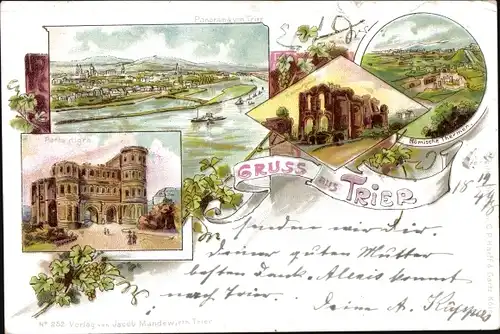 Panorama von Trier
Porta nigra
Römische Thermen
GRUSS aus TRIER
senden wir Dir.
Deiner guten Mutter
besten Dank. Alexis kommt
nach Trier.
Deine A. Küppers
No 252 Verlag von Jacob Mandewirth Trier